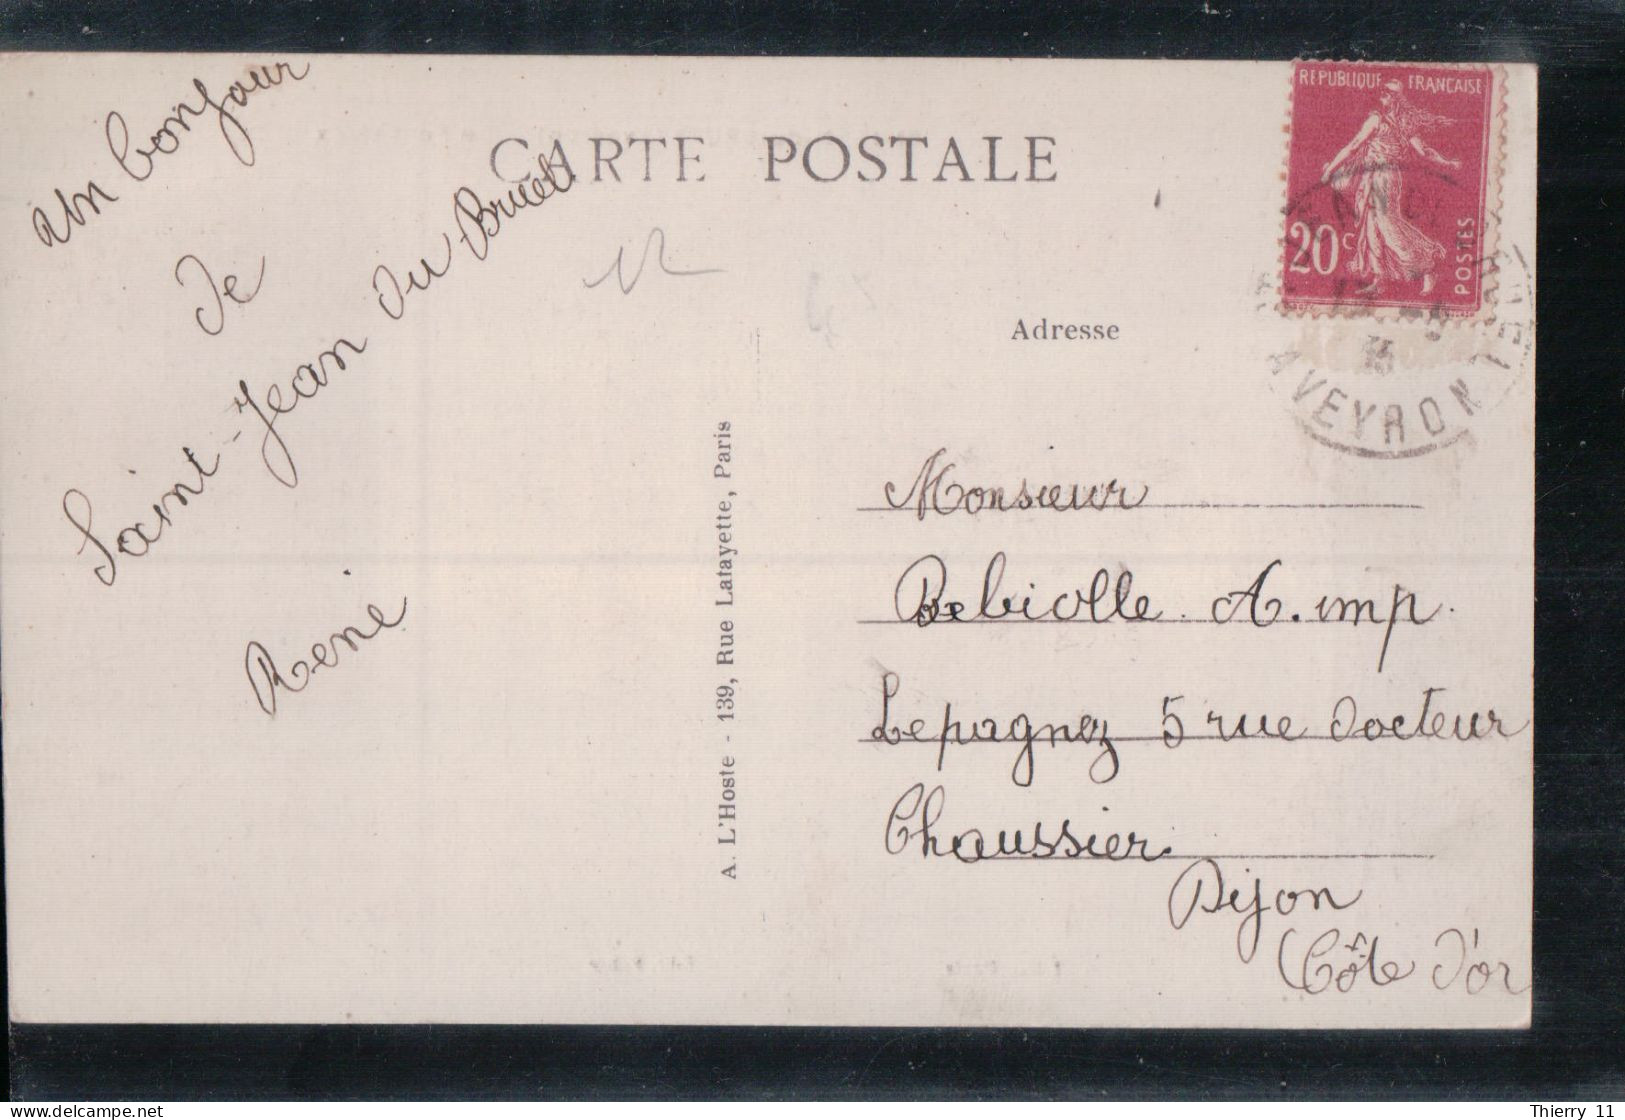 CARTE POSTALE
Un bonjour
de
Saint-Jean du Bruel
René
A. L'Hoste - 139, Rue Lafayette, Paris
REPUBLIQUE FRANÇAISE
20c
POSTES
AVEYRON
Adresse
Monsieur
Bebiolle A. imp
Lepagnez 5 rue Docteur
Chaussier.
Dijon
(Côte d'or
Thierry 11